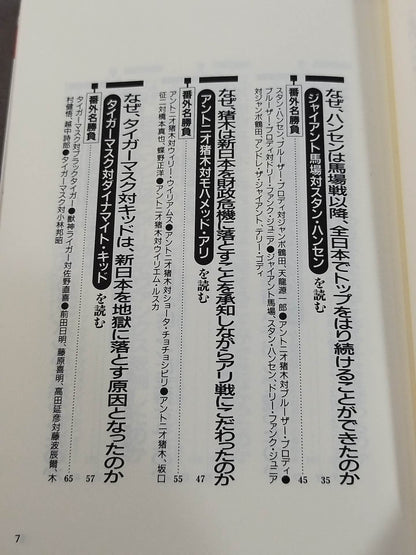 なぜ、ハンセンは馬場戦以降、全日本でトップをはり続けることができたのか
ジャイアント馬場対スタン・ハンセン を読む 35
番外名勝負 45
スタン・ハンセン、ブルーザー・ブロディ対ジャンボ鶴田、天龍源一郎●アントニオ猪木対ブルーザー・ブロディ●
ブルーザー・ブロディ対ドリー・ファンク・ジュニア●ジャイアント馬場、スタン・ハンセン、ドリー・ファンク・ジュニア
対ジャンボ鶴田、アンドレ・ザ・ジャイアント、テリー・ゴディ
なぜ、猪木は新日本を財政危機に落とすことを承知しながらアリ戦にこだわったのか
アントニオ猪木対モハメット・アリ を読む 47
番外名勝負 55
アントニオ猪木対ウィリー・ウィリアムス●アントニオ猪木対ショータ・チョチョシビリ●アントニオ猪木、坂口
征二対橋本真也、蝶野正洋●アントニオ猪木対ウイリエム・ルスカ
なぜ、タイガーマスク対キッドは、新日本を地獄に落とす原因となったのか
タイガーマスク対ダイナマイト・キッド を読む 57
番外名勝負 65
タイガーマスク対ブラックタイガー●獣神ライガー対佐野直喜●前田日明、藤原喜明、高田延彦対藤波辰爾、木
村健悟、越中詩郎●タイガーマスク対小林邦昭
7